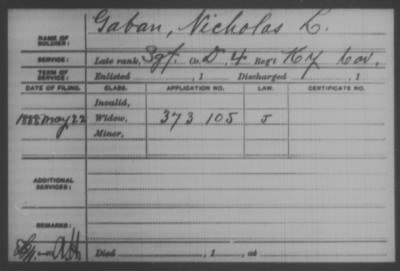 NAME OF SOLDIER: Gaban, Nicholas L.
SERVICE: Late rank, Sgt. Co. D 4 Reg't Ky Cav.
TERM OF SERVICE: Enlisted , 1 Discharged , 1
DATE OF FILING. CLASS. APPLICATION NO. LAW. CERTIFICATE NO.
Invalid,
1888 May 22 Widow, 373 105 J
Minor,
ADDITIONAL SERVICES:
REMARKS:
Died , 1 , at